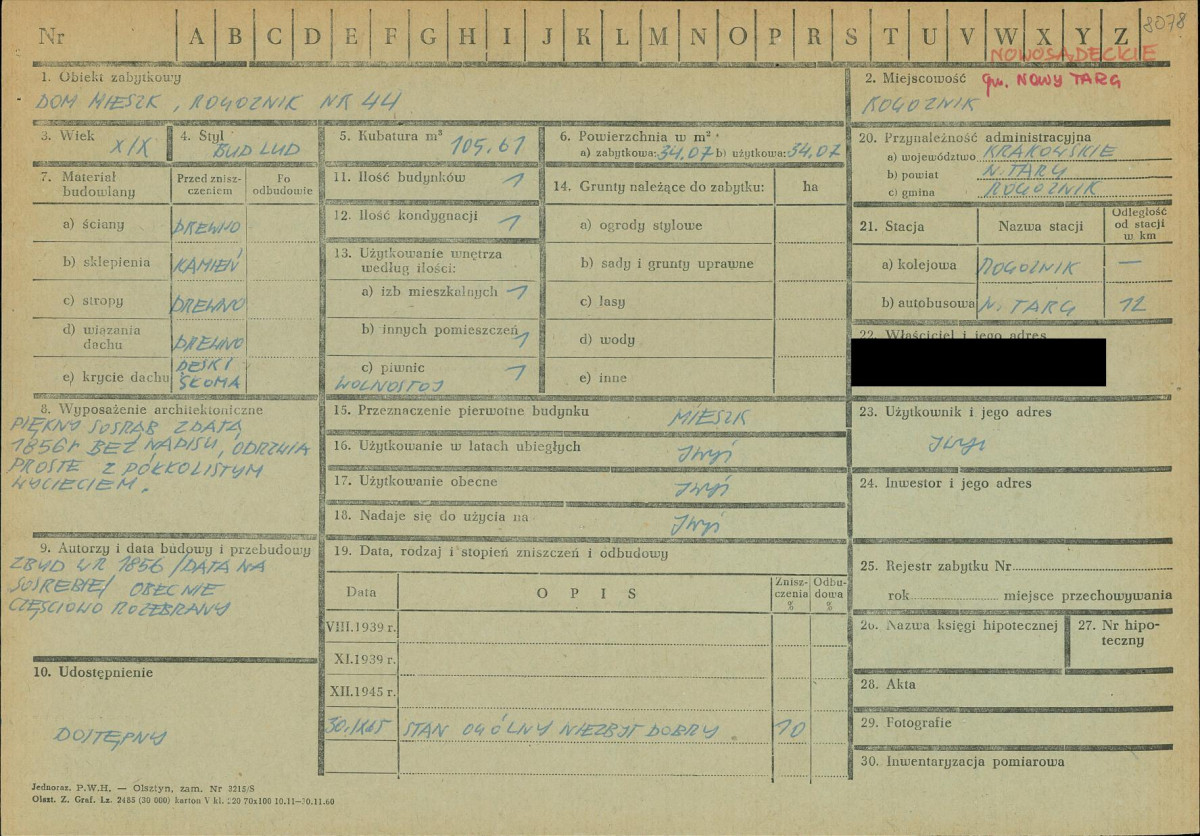 Nr A B C D E F G H I J K L M N O P R S T U V W X Y Z 8078
NOWOSĄDECKIE
1. Obiekt zabytkowy
DOM MIESZK, ROGOZNIK NR 44
2. Miejscowość gm. NOWY TARG
ROGOZNIK
3. Wiek XIX
4. Styl BUD LUD
5. Kubatura m³ 105.61
6. Powierzchnia w m²
a) zabytkowa: 34,07 b) użytkowa: 34,07
7. Materiał budowlany
Przed zniszczeniem
Po odbudowie
a) ściany DREWNO
b) sklepienia KAMIEŃ
c) stropy DREWNO
d) wiązania dachu DREWNO
e) krycie dachu DESKI SŁOMA
8. Wyposażenie architektoniczne
PIĘKNY SOSRĄB Z DATĄ
1856r BEZ NAPISU, ODRZWIA
PROSTE Z PÓŁKOLISTYM
WYCIĘCIEM.
9. Autorzy i data budowy i przebudowy
ZBUD W R 1856 /DATA NA
SOSREBIE/ OBECNIE
CZĘŚCIOWO ROZEBRANY
10. Udostępnienie
DOSTĘPNY
11. Ilość budynków 1
12. Ilość kondygnacji 1
13. Użytkowanie wnętrza według ilości:
a) izb mieszkalnych 1
b) innych pomieszczeń 1
c) piwnic 1
WOLNOSTOJ
14. Grunty należące do zabytku: ha
a) ogrody stylowe
b) sady i grunty uprawne
c) lasy
d) wody
e) inne
15. Przeznaczenie pierwotne budynku MIESZK
16. Użytkowanie w latach ubiegłych
17. Użytkowanie obecne
18. Nadaje się do użycia na
19. Data, rodzaj i stopień zniszczeń i odbudowy
Data OPIS Zniszczenia % Odbudowa %
VIII.1939 r.
XI.1939 r.
XII.1945 r.
STAN OGÓLNY NIEZBYT DOBRY 10
20. Przynależność administracyjna
a) województwo KRAKOWSKIE
b) powiat N. TARG
c) gmina ROGOZNIK
21. Stacja Nazwa stacji Odległość od stacji w km
a) kolejowa ROGOZNIK —
b) autobusowa N. TARG 12
22. Właściciel i jego adres
23. Użytkownik i jego adres
24. Inwestor i jego adres
25. Rejestr zabytku Nr
rok miejsce przechowywania
26. Nazwa księgi hipotecznej
27. Nr hipoteczny
28. Akta
29. Fotografie
30. Inwentaryzacja pomiarowa
Jednoraz. P.W.H. — Olsztyn, zam. Nr 3215/S
Olszt. Z. Graf. Lz. 2485 (30 000) karton V kl. 220 70x100 10.11—30.11.60